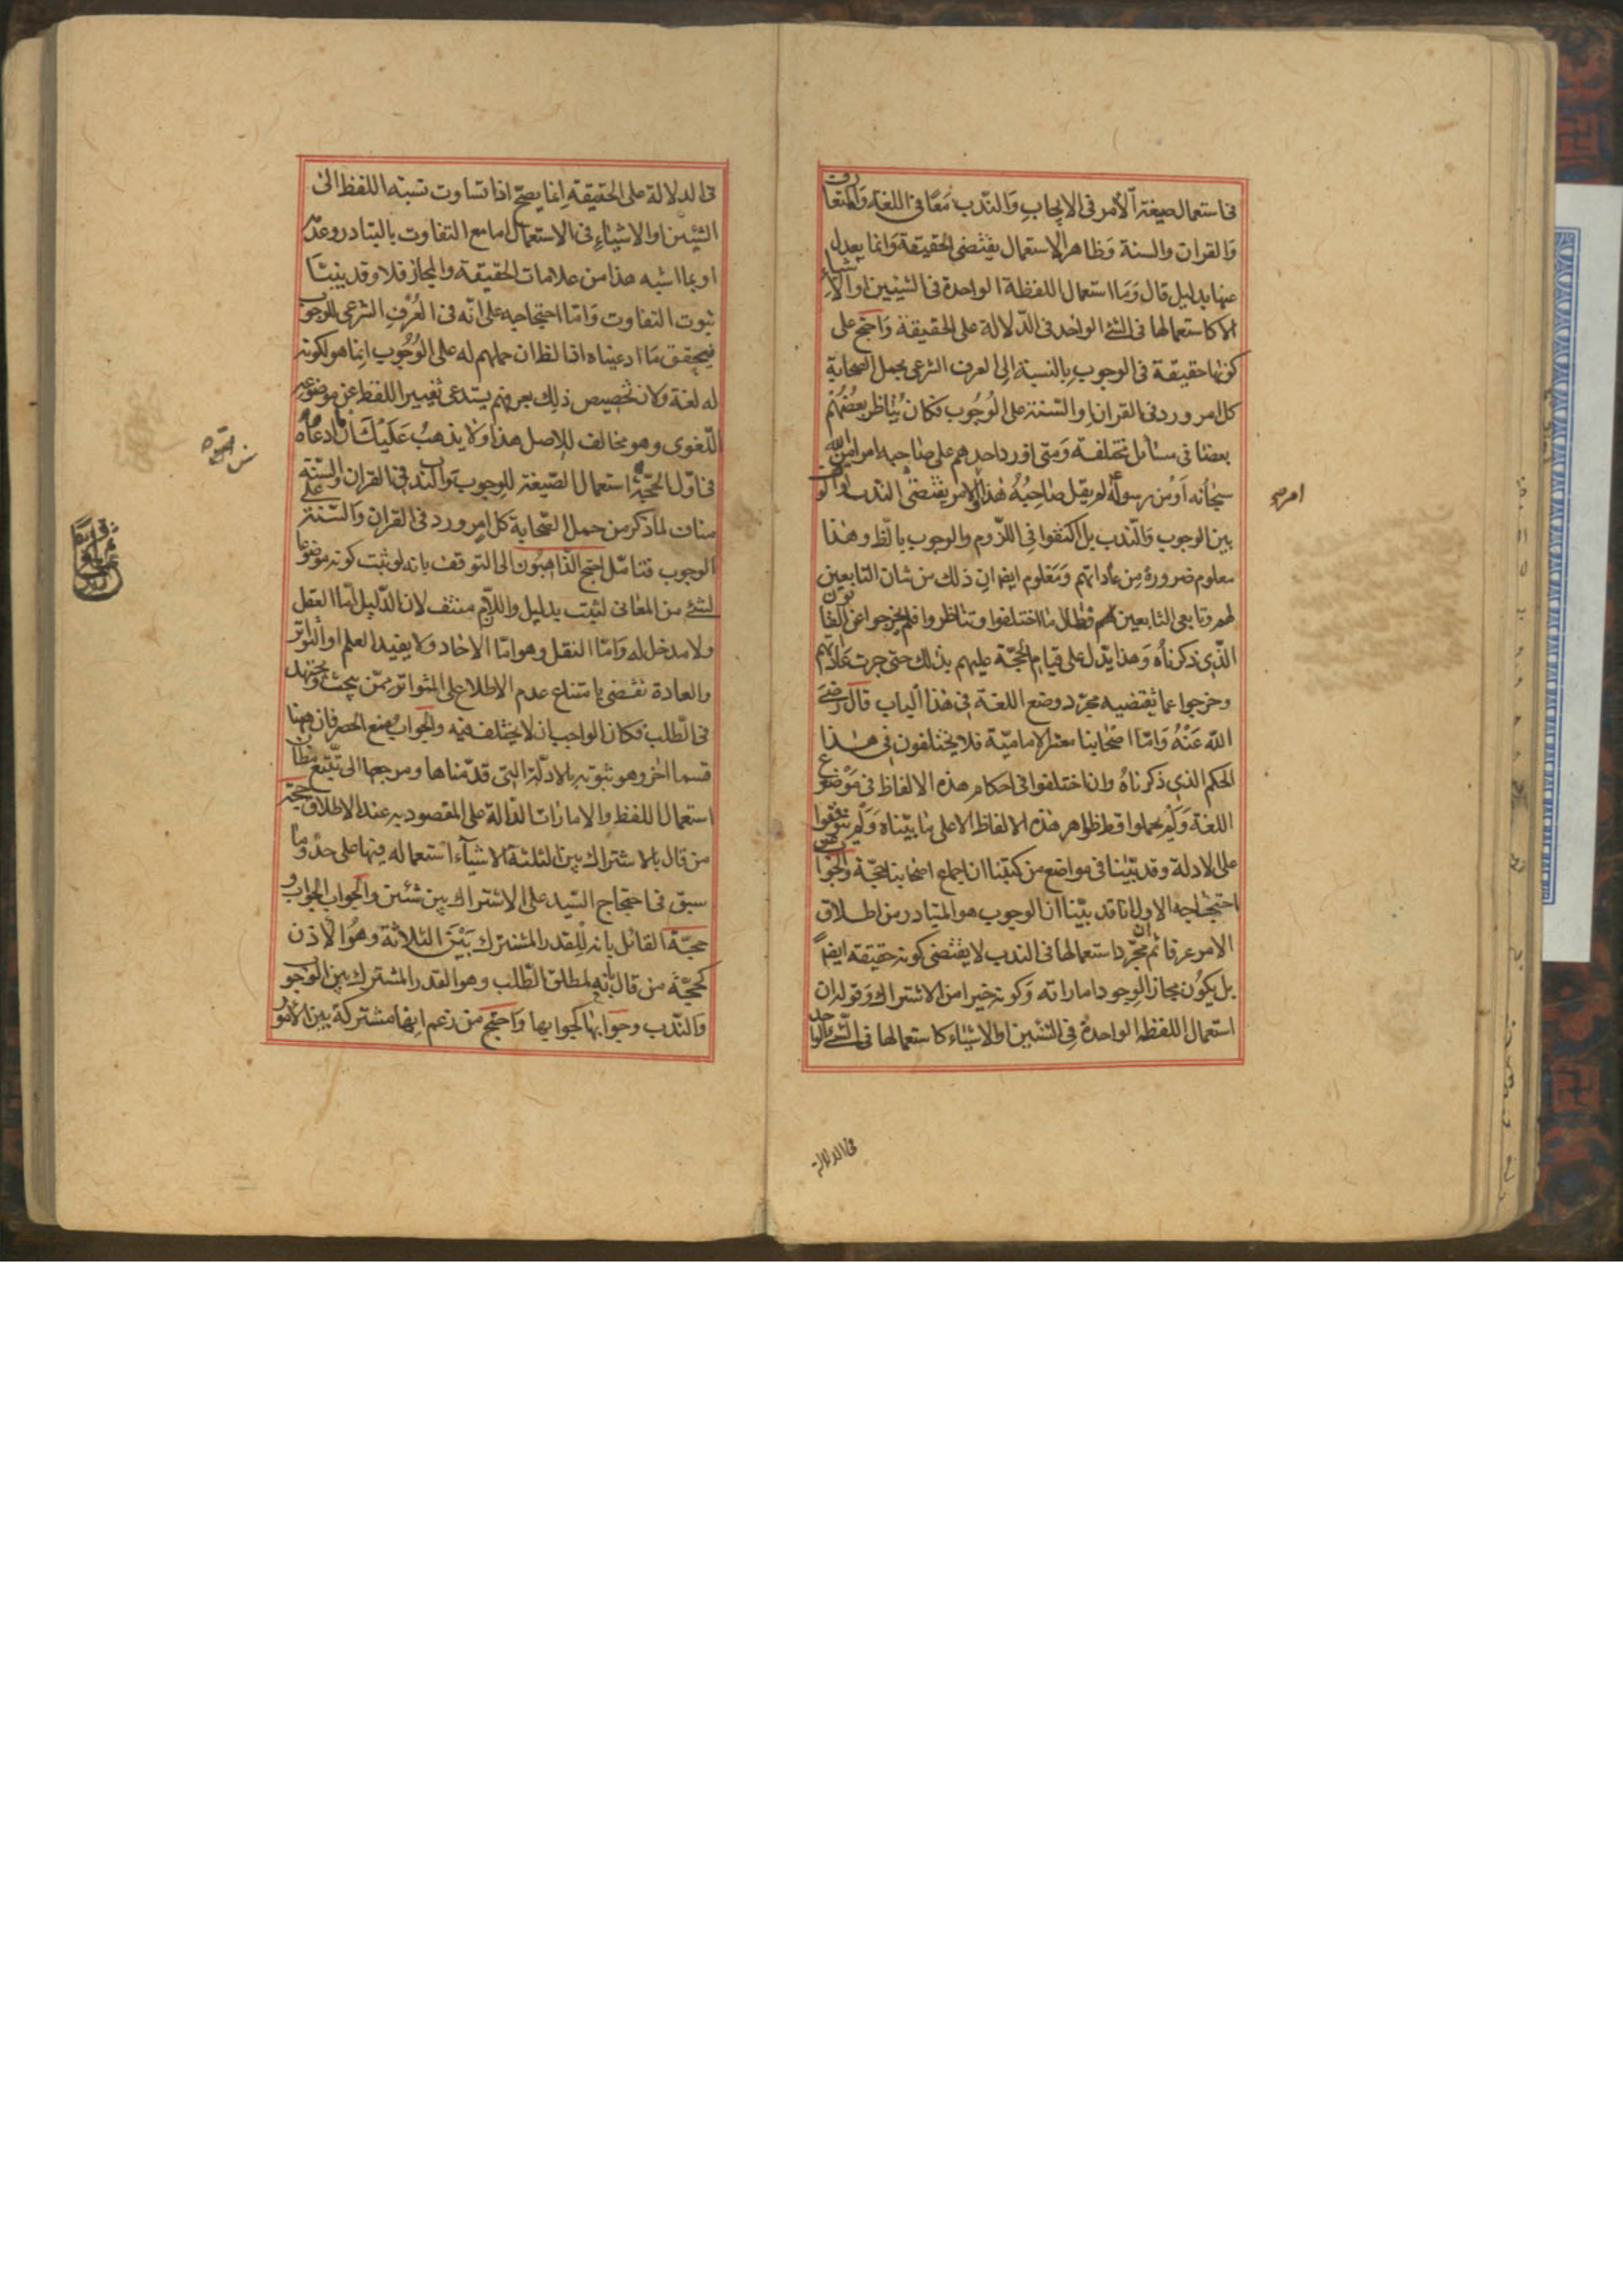 فى استعمال صيغة الأمر فى الايجاب والندب معًا فى اللغة والمتعارف
والقران والسنة وظاهر الاستعمال يقتضى الحقيقة وانما يعدل
عنها بدليل قال وما استعمال اللفظة الواحدة فى الشيئين او الاشياء
الا كاستعمالها فى الشئ الواحد فى الدلالة على الحقيقة واحتج على
كونها حقيقة فى الوجوب بالنسبة الى العرف الشرعى بحمل الصحابة
كل امر ورد فى القران او السنة على الوجوب فكان يناظر بعضهم
بعضا فى مسائل مختلفة ومتى اورد احدهم على صاحبه امرا من الله
سبحانه او من رسوله لم يقل صاحبه هذا الامر يقتضى الندب او الوقف
بين الوجوب والندب بل اكتفوا فى اللزوم والوجوب بالظ وهذا
معلوم ضرورة من عاداتهم ومعلوم ايضا ان ذلك من شان التابعين
لهم وتابعى التابعين فطال ما اختلفوا وتناظروا فلم يخرجوا عن القانون
الذى ذكرناه وهذا يدل على قيام الحجة عليهم بذلك حتى جرت عادتهم
وخرجوا عما يقتضيه مجرد وضع اللغة فى هذا الباب قال رضى
الله عنه واما اصحابنا معشر الامامية فلا يختلفون فى هذا
الحكم الذى ذكرناه وان اختلفوا فى احكام هذه الالفاظ فى موضوع
اللغة ولم يحملوا قط ظواهر هذه الالفاظ الا على ما بيناه ولم يتوقفوا
على الادلة وقد بينا فى مواضع من كتبنا ان اجماع اصحابنا حجة والجواب عن
احتجاجه الاول انا قد بينا ان الوجوب هو المتبادر من اطلاق
الامر عرفا ثم ان مجرد استعمالها فى الندب لا يقتضى كونه حقيقة ايضاً
بل يكون مجازا لوجود اماراته وكونه خيرا من الاشتراك وقوله ان
استعمال اللفظة الواحدة فى الشيئين او الاشياء كاستعمالها فى الشئ الواحد
فى الدلالة
فى الدلالة على الحقيقة انما يصح اذا تساوت نسبة اللفظ الى
الشيئين او الاشياء فى الاستعمال اما مع التفاوت بالتبادر وعدمه
او بما اشبه هذا من علامات الحقيقة والمجاز فلا وقد بينا
ثبوت التفاوت واما احتجاجه على انه فى العرف الشرعى للوجوب
فيحقق ما ادعيناه اذ الظ ان حملهم له على الوجوب انما هو لكونه
له لغة ولان تخصيص ذلك بعرفهم يستدعى تغيير اللفظ عن موضوعه
اللغوى وهو مخالف للاصل هذا ولا يذهب عليك ان ما ادعاه
فى اول الحجة من استعمال الصيغة للوجوب والندب فى القران والسنة
مناف لما ذكر من حمل الصحابة كل امر ورد فى القران والسنة على
الوجوب فتامل احتج الذاهبون الى التوقف بانه لو ثبت كونه موضوعا
لشئ من المعانى لثبت بدليل واللازم منتف لان الدليل اما العقل
ولا مدخل له واما النقل وهو اما الاحاد ولا يفيد العلم او التواتر
والعادة تقتضى بامتناع عدم الاطلاع على التواتر ممن يبحث ويجتهد
فى الطلب فكان الواجب ان لا يختلف فيه والجواب منع الحصر فان ههنا
قسما اخر وهو ثبوته بالادلة التى قدمناها ومرجعها الى تتبع مظان
استعمال اللفظ والامارات الدالة على المقصود به عند الاطلاق حجة
من قال بالاشتراك بين الثلثة الاشياء استعماله فيها على حد وما
سبق فى احتجاج السيد على الاشتراك بين شئين والجواب الجواب و
حجة القائل بانه للقدر المشترك بين الثلاثة وهو الاذن
كحجة من قال بانه لمطلق الطلب وهو القدر المشترك بين الوجوب
والندب وجوابها كجوابها واحتج من زعم انها مشتركة بين الامور